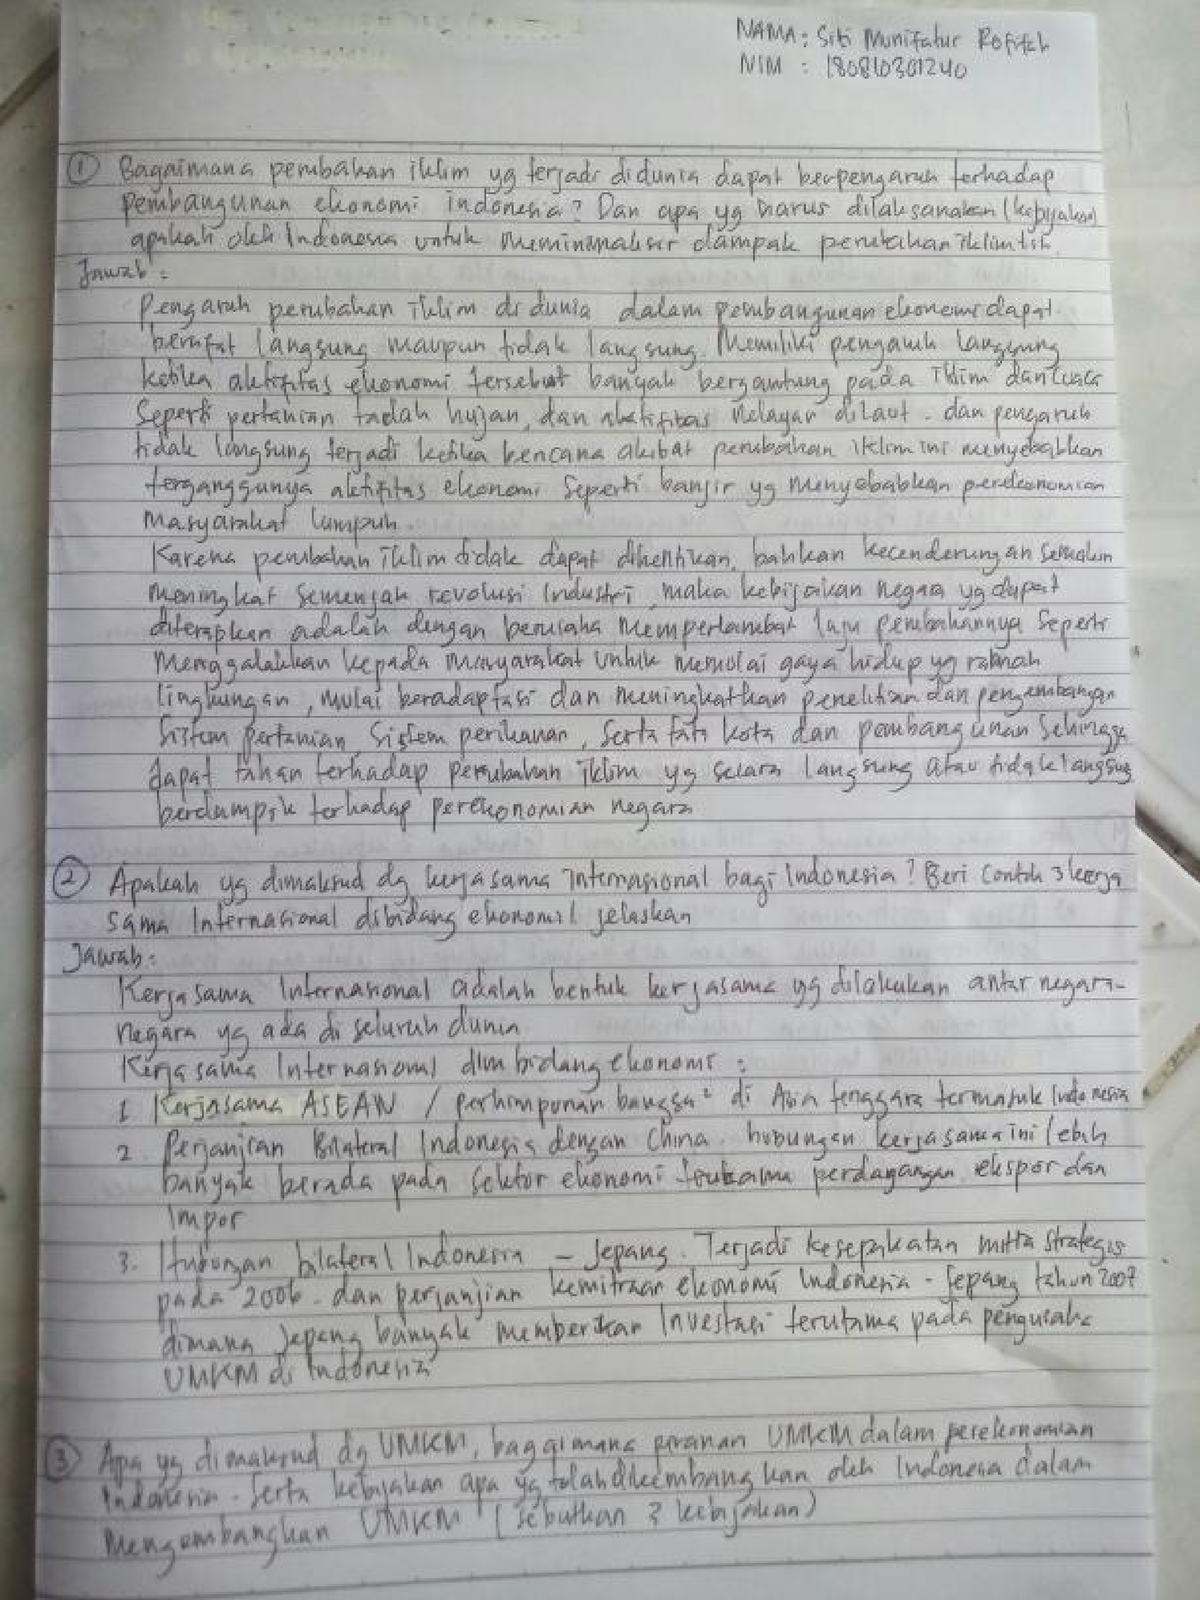 NAMA : Siti Munifatur Rofitah
NIM : 180810301240
① Bagaimana perubahan iklim yg terjadi didunia dapat berpengaruh terhadap
pembangunan ekonomi indonesia? Dan apa yg harus dilaksanakan (kebijakan)
apakah oleh Indonesia untuk meminimalisir dampak perubahan iklim tsb.
Jawab :
Pengaruh perubahan iklim di dunia dalam pembangunan ekonomi dapat
bersifat langsung maupun tidak langsung. Memiliki pengaruh langsung
ketika aktifitas ekonomi tersebut banyak bergantung pada iklim dan cuaca
Seperti pertanian tadah hujan, dan aktifitas Nelayan dilaut. dan pengaruh
tidak langsung terjadi ketika bencana akibat perubahan iklim ini menyebabkan
terganggunya aktifitas ekonomi seperti banjir yg menyebabkan perekonomian
Masyarakat lumpuh.
Karena perubahan iklim tidak dapat dihentikan, bahkan kecenderungan semakin
meningkat semenjak revolusi Industri, maka kebijakan negara yg dapat
diterapkan adalah dengan berusaha memperlambat laju perubahannya seperti
Menggalakkan kepada masyarakat untuk memulai gaya hidup yg ramah
lingkungan, mulai beradaptasi dan meningkatkan penelitian dan pengembangan
Sistem pertanian, Sistem perikanan, serta tata kota dan pembangunan sehingga
dapat tahan terhadap perubahan iklim yg secara langsung atau tidak langsung
berdampak terhadap perekonomian negara
② Apakah yg dimaksud dg kerjasama internasional bagi Indonesia? Beri Contoh 3 kerja
sama Internasional dibidang ekonomi! jelaskan
Jawab :
Kerjasama Internasional adalah bentuk kerjasama yg dilakukan antar negara-
negara yg ada di seluruh dunia
Kerjasama Internasional dlm bidang ekonomi :
1. Kerjasama ASEAN / perhimpunan bangsa² di Asia tenggara termasuk Indonesia
2. Perjanjian Bilateral Indonesia dengan China. hubungan kerjasama ini lebih
banyak berada pada sektor ekonomi terutama perdagangan ekspor dan
Impor
3. Hubungan bilateral Indonesia - Jepang. Terjadi kesepakatan mitra strategis
pada 2006. dan perjanjian kemitraan ekonomi Indonesia - Jepang tahun 2007
dimana Jepang banyak memberikan Investasi terutama pada pengusaha
UMKM di Indonesia
③ Apa yg dimaksud dg UMKM, bagaimana peranan UMKM dalam perekonomian
Indonesia. Serta kebijakan apa yg telah dikembangkan oleh Indonesia dalam
Mengembangkan UMKM (sebutkan 3 kebijakan)